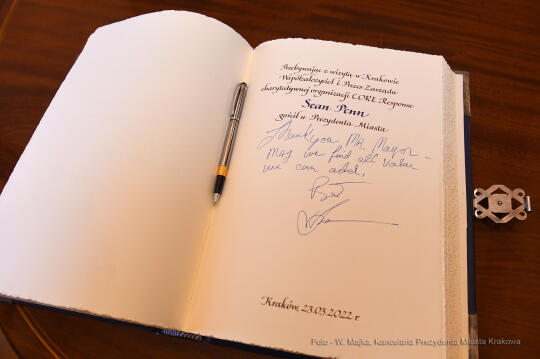 Przebywając z wizytą w Krakowie
Współzałożyciel i Prezes Zarządu
charytatywnej organizacji CORE Response
Sean Penn
gościł u Prezydenta Miasta
Thank you Mr. Mayor -
May we find all value
we can add,
Kraków, 23.03.2022 r.
Foto - W. Majka, Kancelaria Prezydenta Miasta Krakowa